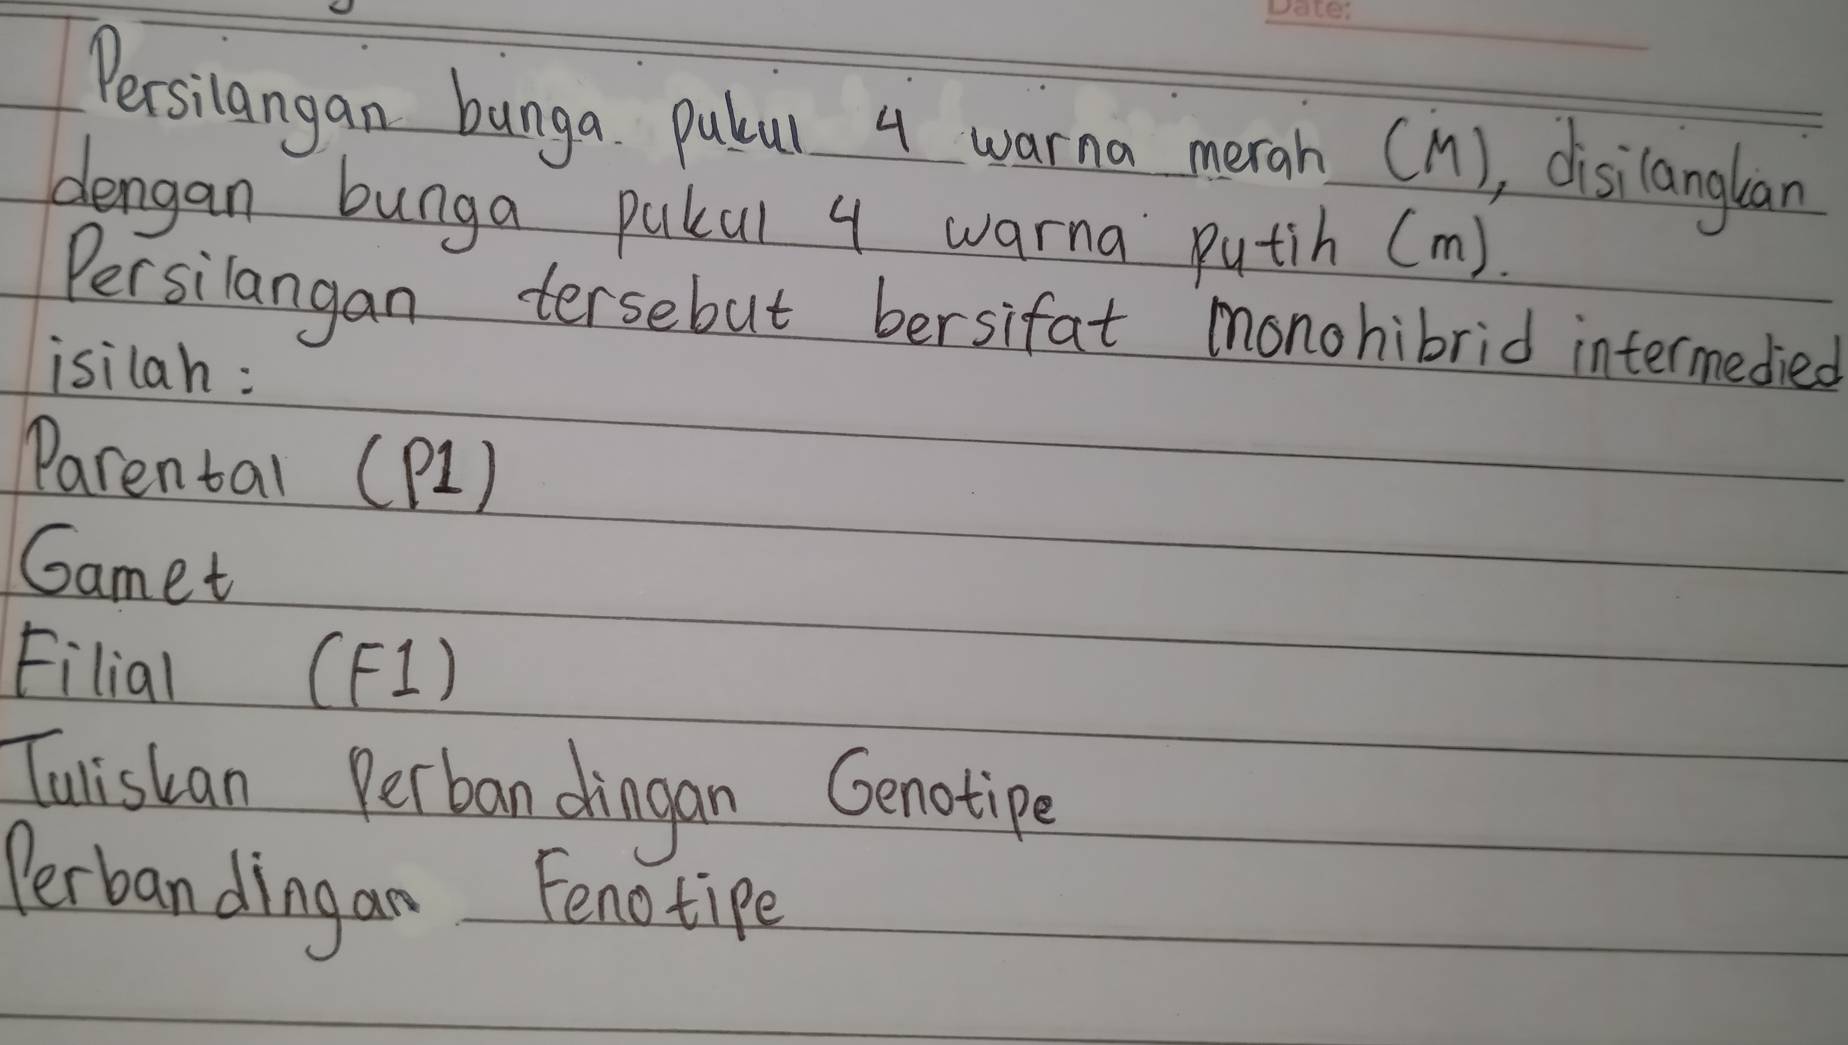 Date:
Persilangan bunga pukul 4 warna merah (M), disilangkan
dengan bunga pukul 4 warna putih (m).
Persilangan tersebut bersifat monohibrid intermedied
isilah :
Parental (P1)
Gamet
Filial (F1)
Tuliskan Perbandingan Genotipe
Perbandingan Fenotipe